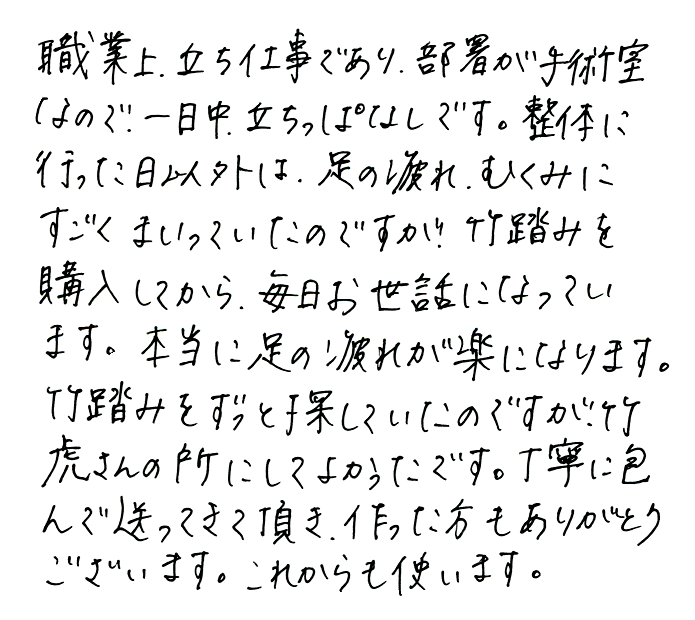 職業上、立ち仕事であり、部署が手術室
なので、一日中、立ちっぱなしです。整体に
行った日以外は、足の疲れ、むくみに
すごくまいっていたのですが、竹踏みを
購入してから、毎日お世話になってい
ます。本当に足の疲れが楽になります。
竹踏みをずっと探していたのですが、竹
虎さんの所にしてよかったです。丁寧に包
んで送ってきて頂き、作った方もありがとう
ございます。これからも使います。